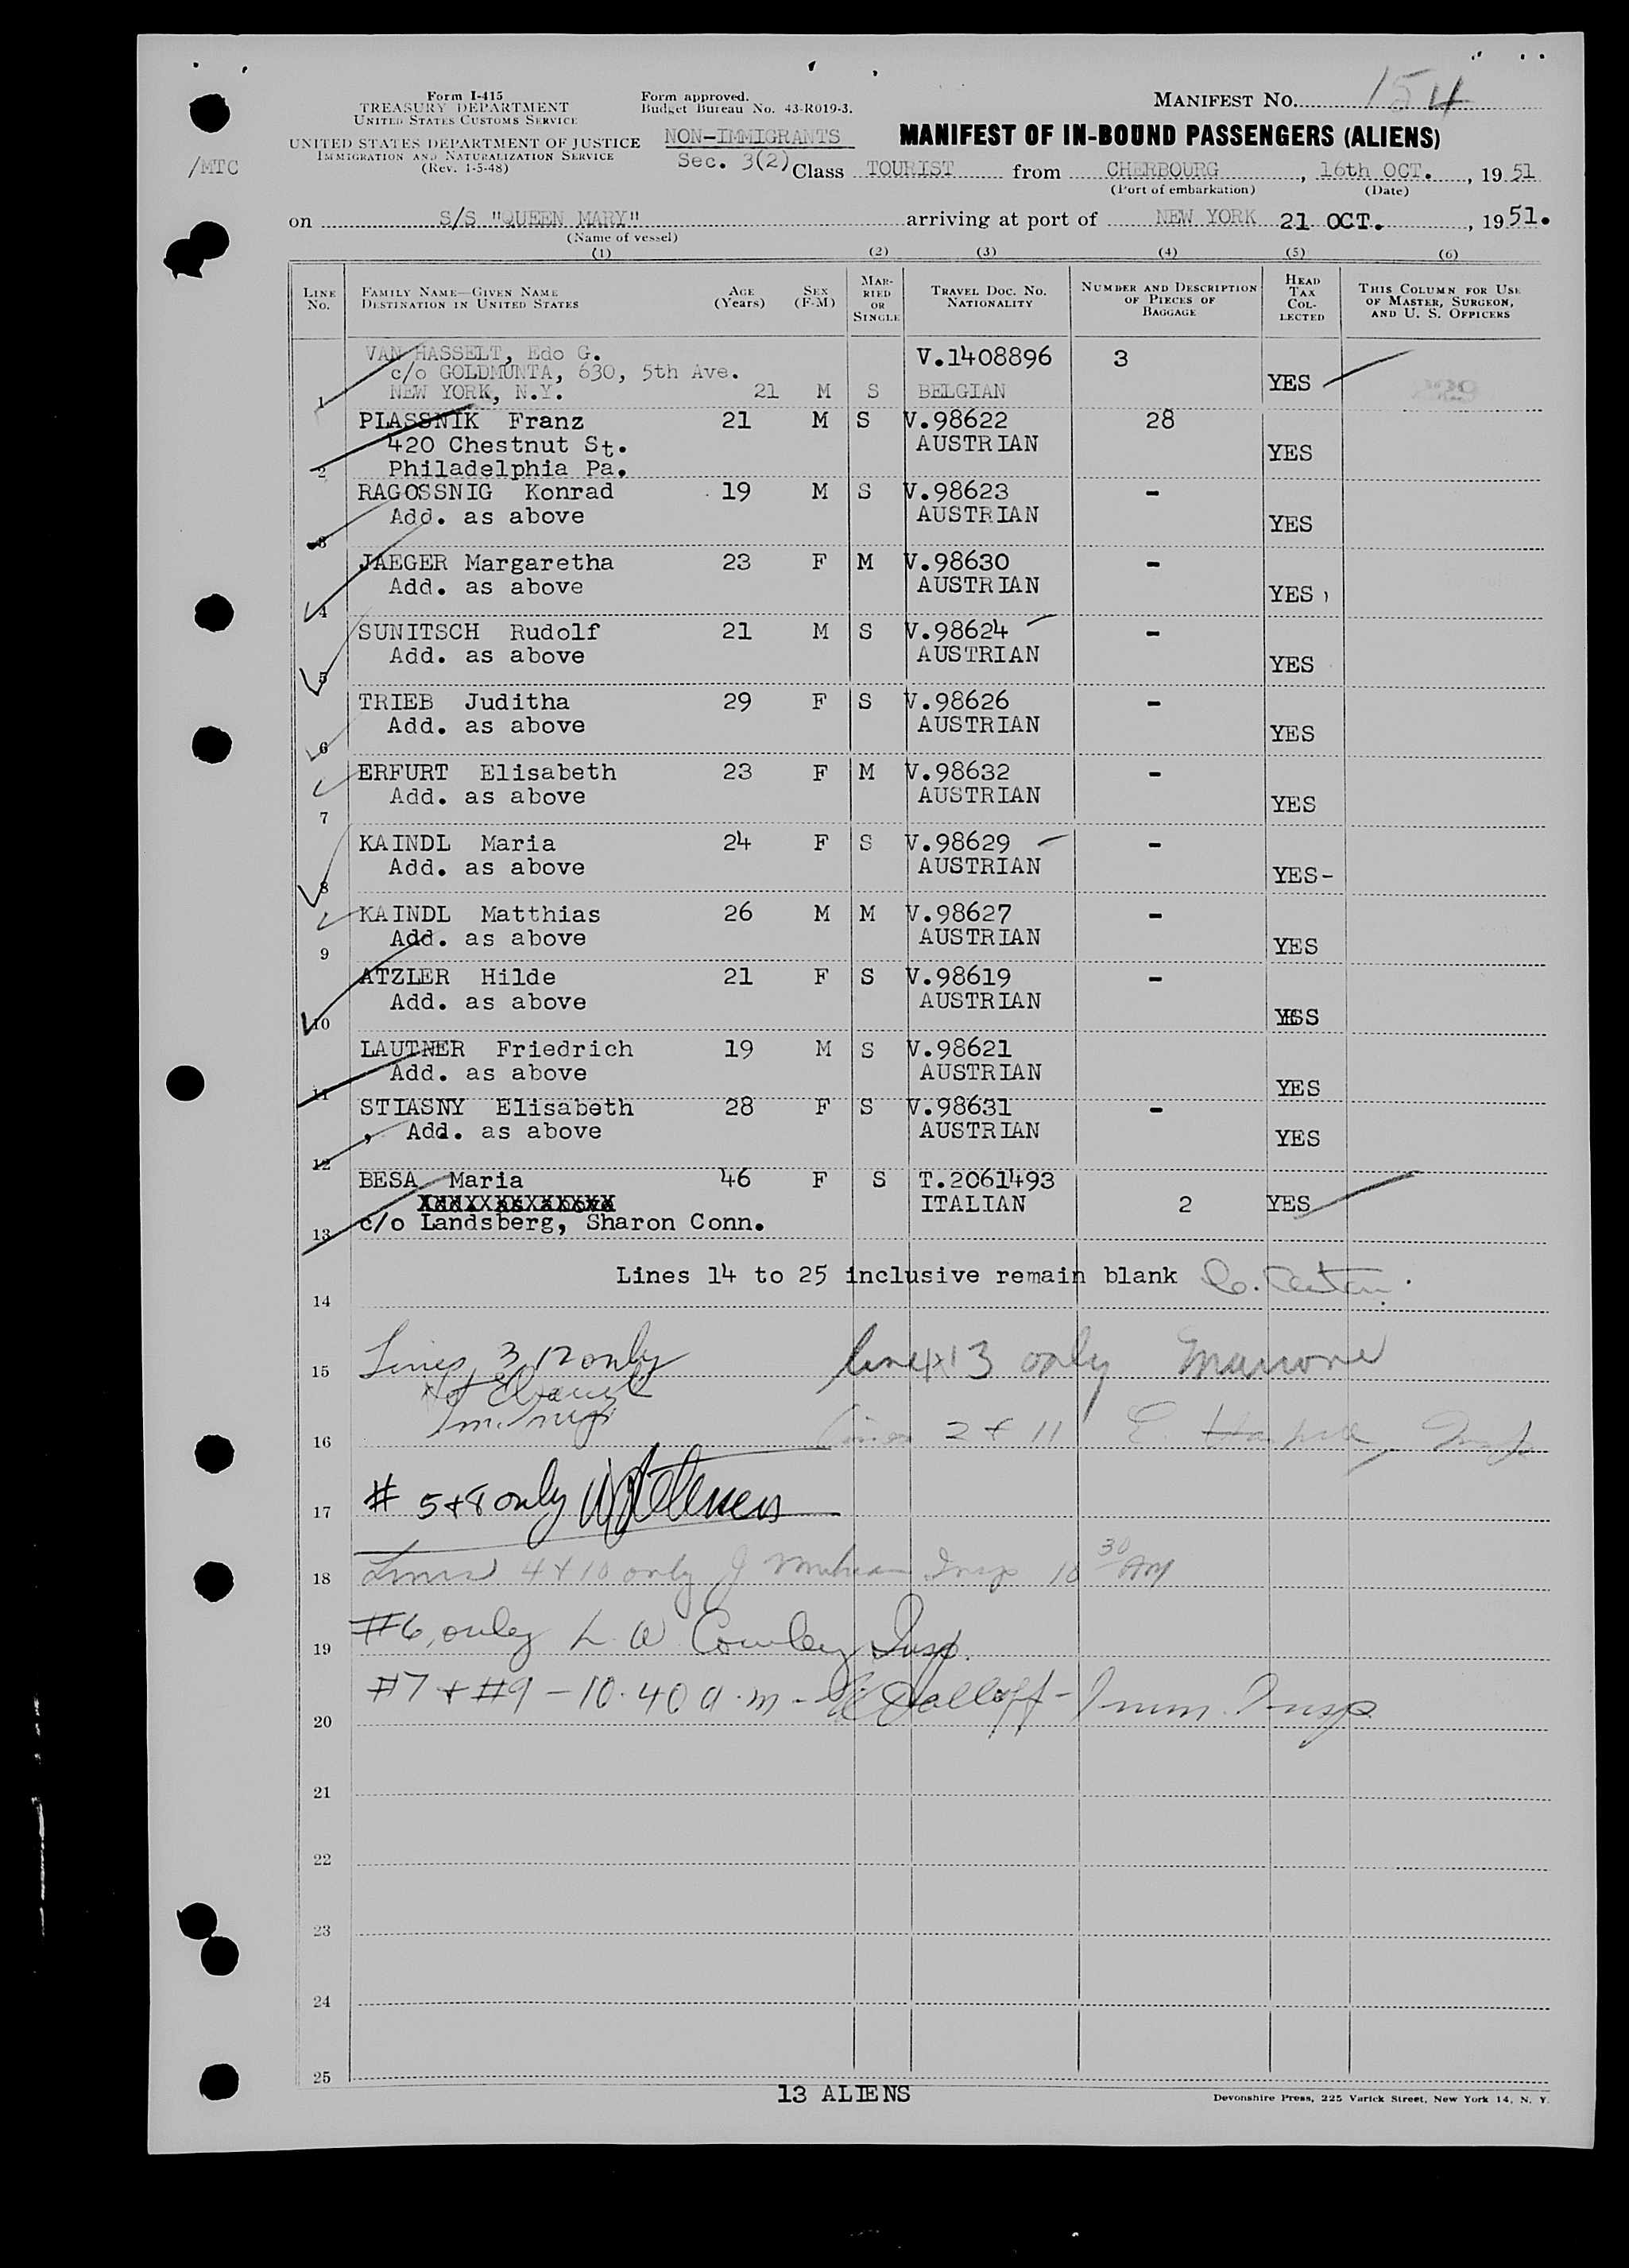 MANIFEST NO. 154
Form I-415
TREASURY DEPARTMENT
UNITED STATES CUSTOMS SERVICE
UNITED STATES DEPARTMENT OF JUSTICE
IMMIGRATION AND NATURALIZATION SERVICE
(Rev. 1-5-48)
Form approved.
Budget Bureau No. 43-R019-3.
/MTC
NON-IMMIGRANTS
Sec. 3(2)
MANIFEST OF IN-BOUND PASSENGERS (ALIENS)
Class TOURIST from CHERBOURG, 16th OCT., 1951
(Port of embarkation) (Date)
on S/S "QUEEN MARY" arriving at port of NEW YORK 21 OCT., 1951.
(Name of vessel)
(1) (2) (3) (4) (5) (6)
LINE NO. FAMILY NAME—GIVEN NAME DESTINATION IN UNITED STATES AGE (Years) SEX (F-M) MARRIED OR SINGLE TRAVEL DOC. NO. NATIONALITY NUMBER AND DESCRIPTION OF PIECES OF BAGGAGE HEAD TAX COLLECTED THIS COLUMN FOR USE OF MASTER, SURGEON, AND U. S. OFFICERS
VAN HASSELT, Edo G. V.1408896 3
c/o GOLDMUNTA, 630, 5th Ave.
1 NEW YORK, N.Y. 21 M S BELGIAN YES
PIASSNIK Franz 21 M S V.98622 28
420 Chestnut St. AUSTRIAN YES
2 Philadelphia Pa.
RAGOSSNIG Konrad 19 M S V.98623 -
Add. as above AUSTRIAN YES
3
JAEGER Margaretha 23 F M V.98630 -
Add. as above AUSTRIAN YES
4
SUNITSCH Rudolf 21 M S V.98624 -
Add. as above AUSTRIAN YES
5
TRIEB Juditha 29 F S V.98626 -
Add. as above AUSTRIAN YES
6
ERFURT Elisabeth 23 F M V.98632 -
Add. as above AUSTRIAN YES
7
KAINDL Maria 24 F S V.98629 -
Add. as above AUSTRIAN YES-
8
KAINDL Matthias 26 M M V.98627 -
Add. as above AUSTRIAN YES
9
ATZLER Hilde 21 F S V.98619 -
Add. as above AUSTRIAN YES
10
LAUTNER Friedrich 19 M S V.98621
Add. as above AUSTRIAN YES
11
STIASNY Elisabeth 28 F S V.98631 -
Add. as above AUSTRIAN YES
12
BESA Maria 46 F S T.2061493
ITALIAN 2 YES
13 c/o Landsberg, Sharon Conn.
Lines 14 to 25 inclusive remain blank
14
15 Lines 3, 12 only line 1 x 13 only
16 Lines 2 & 11 E.
17 # 5 & 8 only
18 Lines 4 & 10 only J Insp 10 30 AM
19 #6, only L. W. Cowley Insp.
20 #7 & #9 - 10.40 a.m - Imm. Insp
21
22
23
24
25
13 ALIENS
Devonshire Press, 225 Varick Street, New York 14, N. Y.